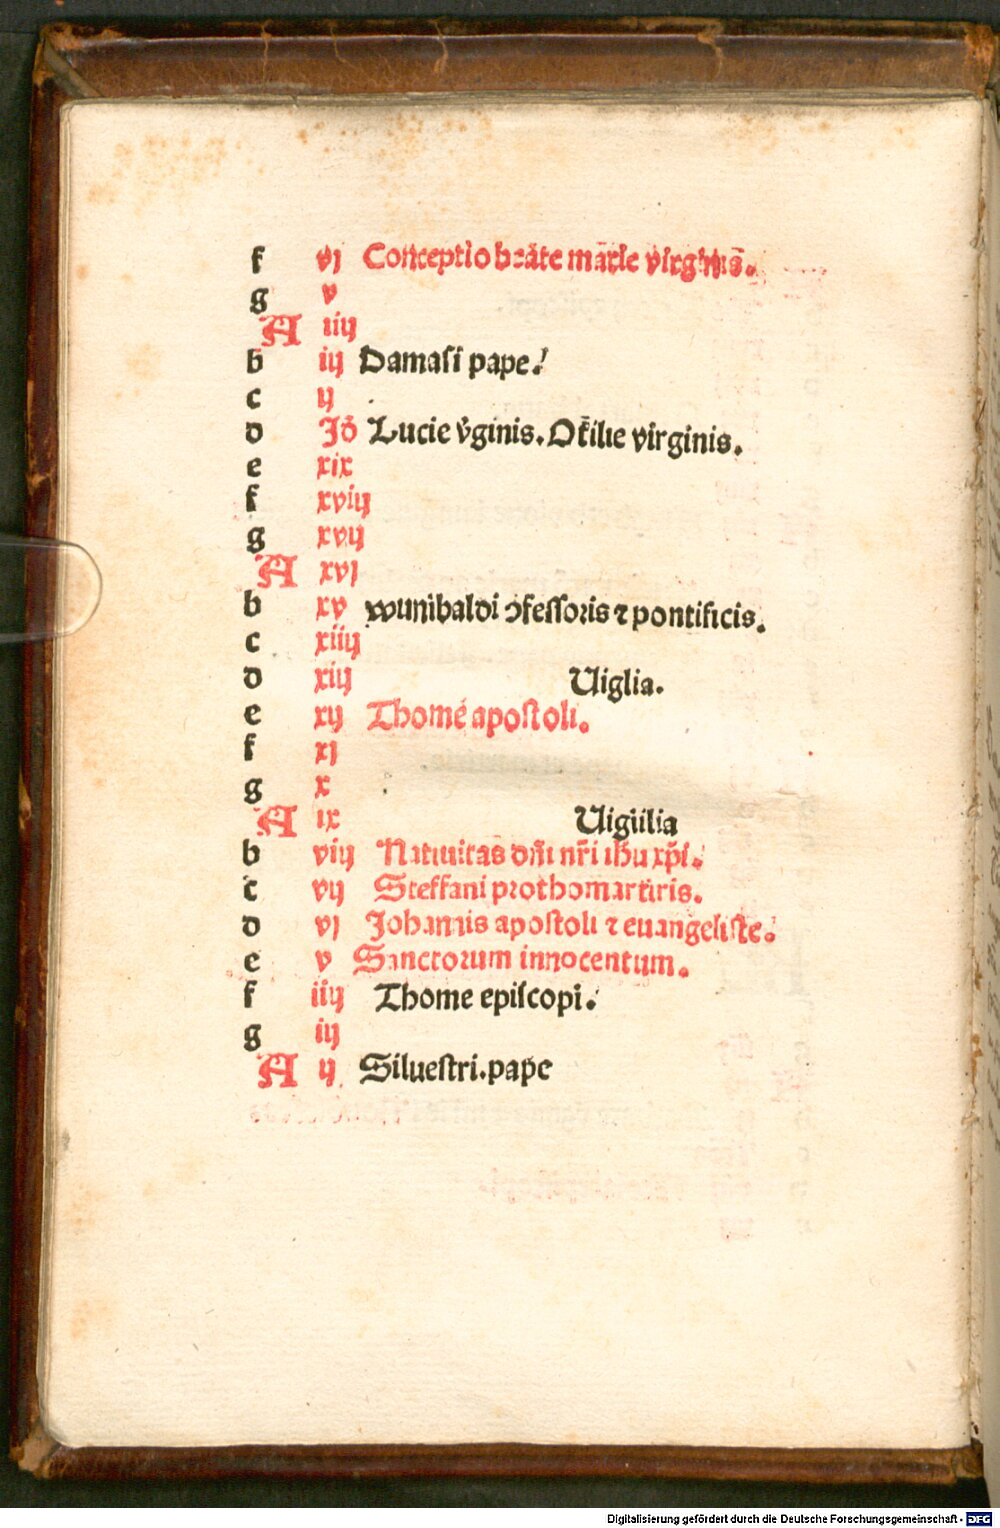 f vj Conceptio beāte mārie virginis̄.
g v
A iiij
b iij Damasi pape.
c ij
d Jd̄ Lucie v̄ginis. Otīlie virginis.
e xix
f xviij
g xvij
A xvj
b xv wunibaldi ɔfessoris ⁊ pontificis.
c xiiij
d xiij Uiglia.
e xij Thome apostoli.
f xj
g x
A ix Uigiilia
b viij Natiuitas dn̄i nr̄i ih̄u xp̄i.
c vij Steffani prothomartiris.
d vj Johannis apostoli ⁊ euangeliste.
e v Sanctorum innocentum.
f iiij Thome episcopi.
g iij
A ij Siluestri. pape
Digitalisierung gefördert durch die Deutsche Forschungsgemeinschaft - DFG